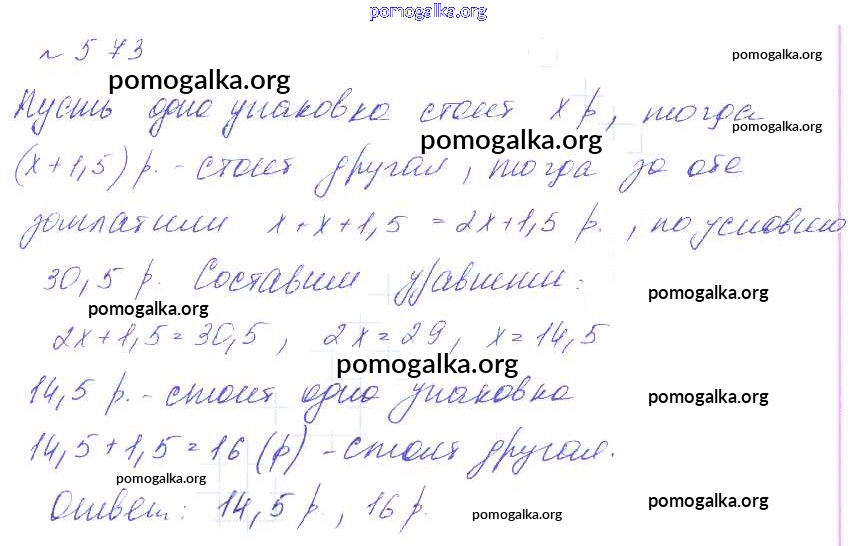 pomogalka.org
№ 573
pomogalka.org
pomogalka.org
Пусть одна упаковка стоит x р., тогда
pomogalka.org
pomogalka.org
(x+1,5) р. - стоит другая, тогда за обе
заплатили x+x+1,5 = 2x+1,5 р., по условию
30,5 р. Составим уравнение:
pomogalka.org
pomogalka.org
2x+1,5=30,5, 2x=29, x=14,5
pomogalka.org
14,5 р. - стоит одна упаковка
pomogalka.org
14,5+1,5=16 (р) - стоит другая.
pomogalka.org
Ответ: 14,5 р., 16 р.
pomogalka.org
pomogalka.org